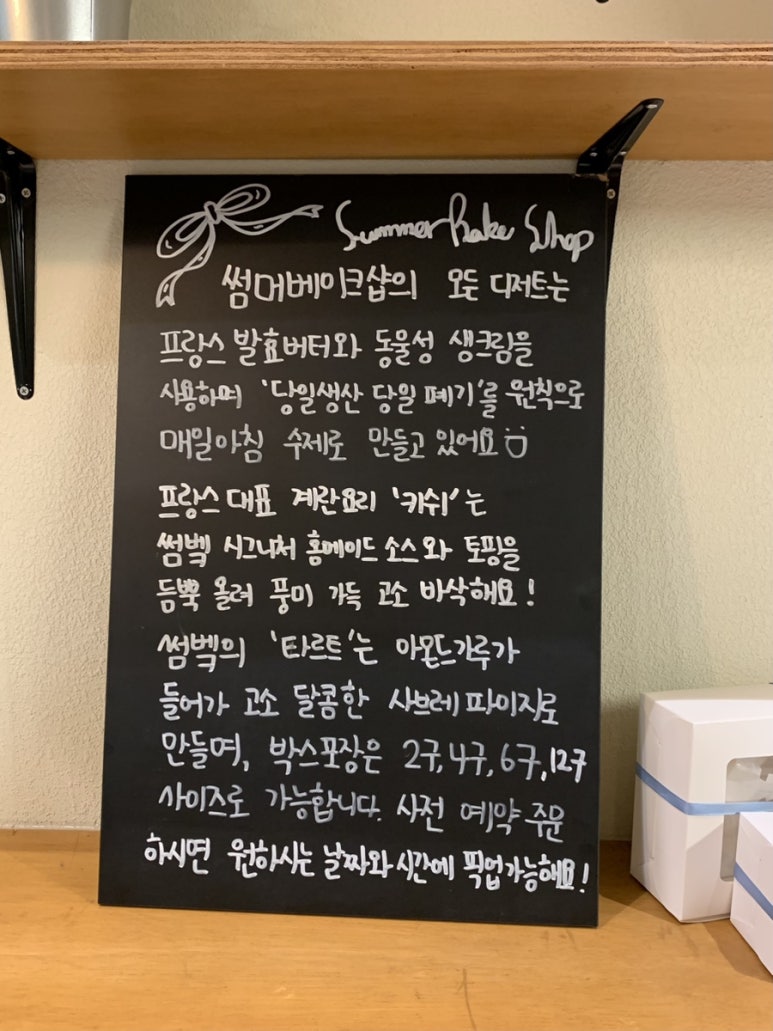 Summer Bake Shop
썸머베이크샵의 모든 디저트는
프랑스 발효버터와 동물성 생크림을
사용하며 '당일생산 당일 폐기'를 원칙으로
매일아침 수제로 만들고 있어요
프랑스 대표 계란요리 '키쉬'는
썸벸 시그니처 홈메이드 소스와 토핑을
듬뿍 올려 풍미 가득 고소 바삭해요!
썸벸의 '타르트'는 아몬드가루가
들어가 고소 달콤한 사브레 파이지로
만들며, 박스포장은 2구, 4구, 6구, 12구
사이즈로 가능합니다. 사전 예약 주문
하시면 원하시는 날짜와 시간에 픽업가능해요!